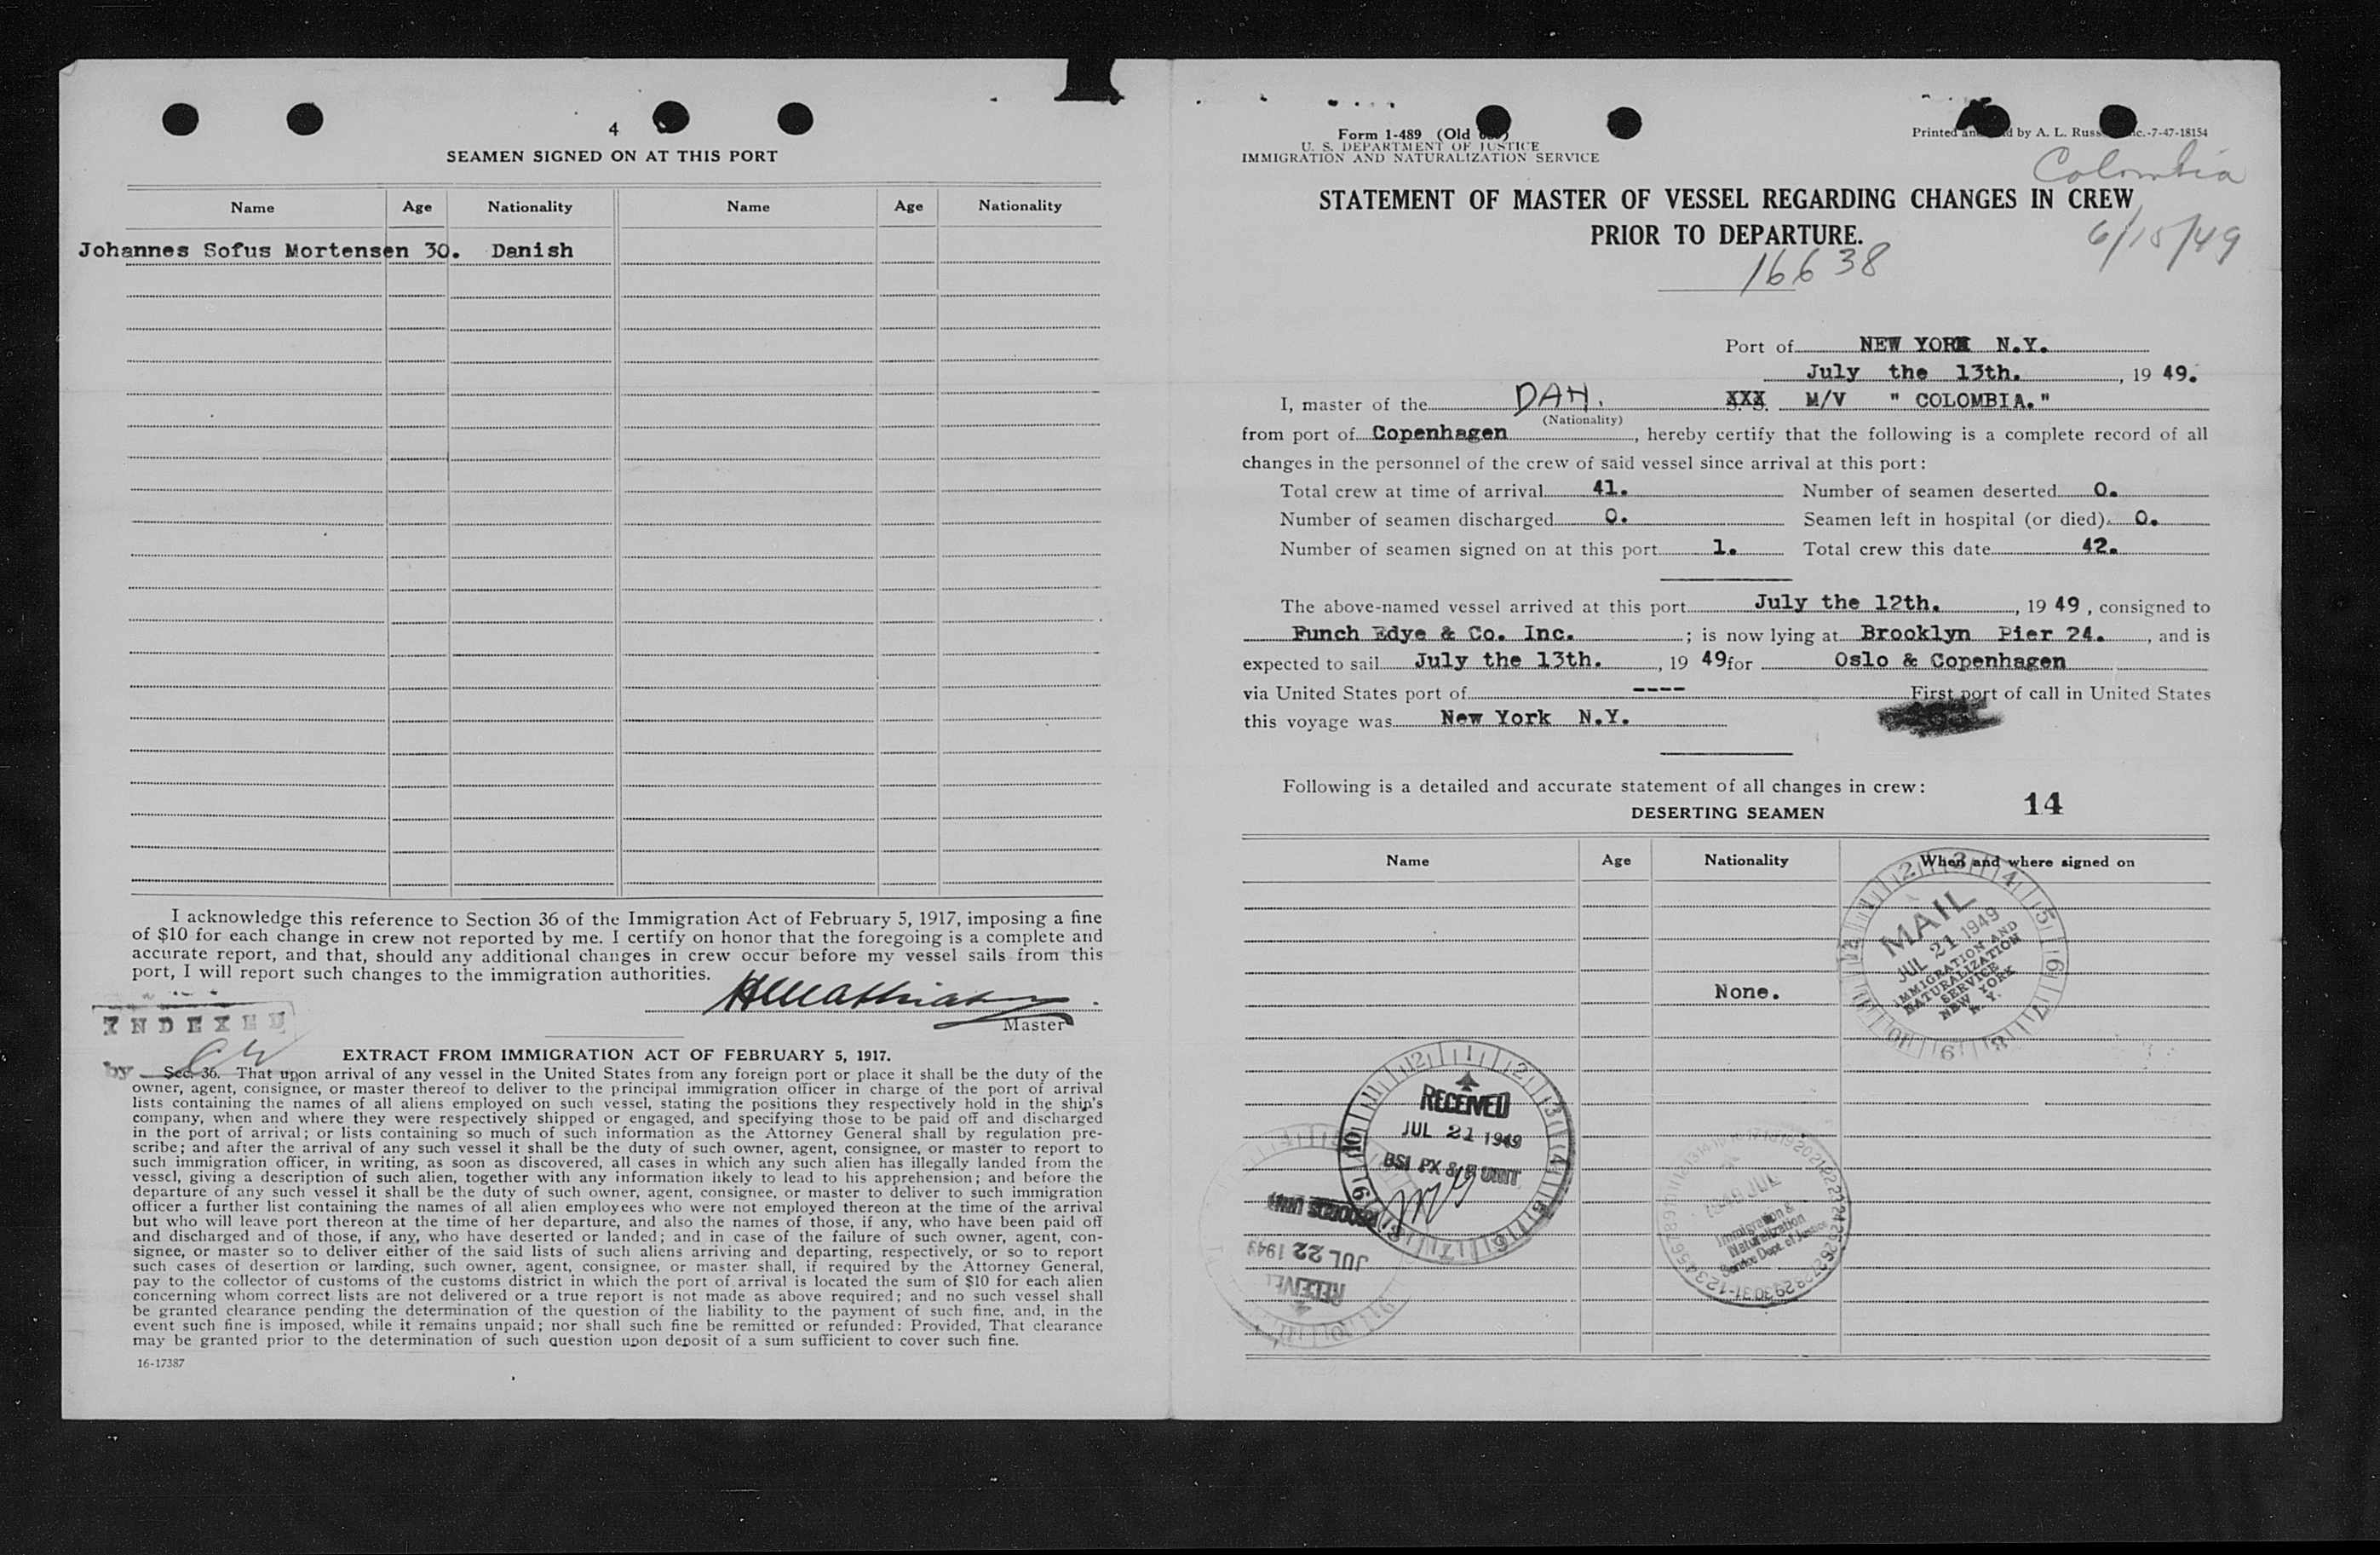 4
SEAMEN SIGNED ON AT THIS PORT
Name Age Nationality Name Age Nationality
Johannes Sofus Mortensen 30. Danish
I acknowledge this reference to Section 36 of the Immigration Act of February 5, 1917, imposing a fine
of $10 for each change in crew not reported by me. I certify on honor that the foregoing is a complete and
accurate report, and that, should any additional changes in crew occur before my vessel sails from this
port, I will report such changes to the immigration authorities.
Master
INDEXED
by
EXTRACT FROM IMMIGRATION ACT OF FEBRUARY 5, 1917.
Sec. 36. That upon arrival of any vessel in the United States from any foreign port or place it shall be the duty of the
owner, agent, consignee, or master thereof to deliver to the principal immigration officer in charge of the port of arrival
lists containing the names of all aliens employed on such vessel, stating the positions they respectively hold in the ship's
company, when and where they were respectively shipped or engaged, and specifying those to be paid off and discharged
in the port of arrival; or lists containing so much of such information as the Attorney General shall by regulation pre-
scribe; and after the arrival of any such vessel it shall be the duty of such owner, agent, consignee, or master to report to
such immigration officer, in writing, as soon as discovered, all cases in which any such alien has illegally landed from the
vessel, giving a description of such alien, together with any information likely to lead to his apprehension; and before the
departure of any such vessel it shall be the duty of such owner, agent, consignee, or master to deliver to such immigration
officer a further list containing the names of all alien employees who were not employed thereon at the time of the arrival
but who will leave port thereon at the time of her departure, and also the names of those, if any, who have been paid off
and discharged and of those, if any, who have deserted or landed; and in case of the failure of such owner, agent, con-
signee, or master so to deliver either of the said lists of such aliens arriving and departing, respectively, or so to report
such cases of desertion or landing, such owner, agent, consignee, or master shall, if required by the Attorney General,
pay to the collector of customs of the customs district in which the port of arrival is located the sum of $10 for each alien
concerning whom correct lists are not delivered or a true report is not made as above required; and no such vessel shall
be granted clearance pending the determination of the question of the liability to the payment of such fine, and, in the
event such fine is imposed, while it remains unpaid; nor shall such fine be remitted or refunded: Provided, That clearance
may be granted prior to the determination of such question upon deposit of a sum sufficient to cover such fine.
16-17387
Form 1-489 (Old
U. S. DEPARTMENT OF JUSTICE
IMMIGRATION AND NATURALIZATION SERVICE
Printed by A. L. -7-47-18154
Colombia
STATEMENT OF MASTER OF VESSEL REGARDING CHANGES IN CREW
PRIOR TO DEPARTURE.
6/15/49
16638
Port of NEW YORK N.Y.
July the 13th. , 19 49.
I, master of the DAN. XXX M/V " COLOMBIA."
(Nationality)
from port of Copenhagen , hereby certify that the following is a complete record of all
changes in the personnel of the crew of said vessel since arrival at this port:
Total crew at time of arrival 41. Number of seamen deserted 0.
Number of seamen discharged 0. Seamen left in hospital (or died) 0.
Number of seamen signed on at this port 1. Total crew this date 42.
The above-named vessel arrived at this port July the 12th. , 19 49 , consigned to
Funch Edye & Co. Inc. ; is now lying at Brooklyn Pier 24. , and is
expected to sail July the 13th. , 19 49 for Oslo & Copenhagen
via United States port of ---- First port of call in United States
this voyage was New York N.Y.
Following is a detailed and accurate statement of all changes in crew:
DESERTING SEAMEN
14
Name Age Nationality When and where signed on
None.
MAIL
JUL 21 1949
IMMIGRATION AND
NATURALIZATION
SERVICE
NEW YORK
N. Y.
RECEIVED
JUL 21 1949
BSI PX & UNIT
JUL 22 1949
RECEIVED
1949 JUL
Immigration &
Naturalization
Service Dept. of Justice